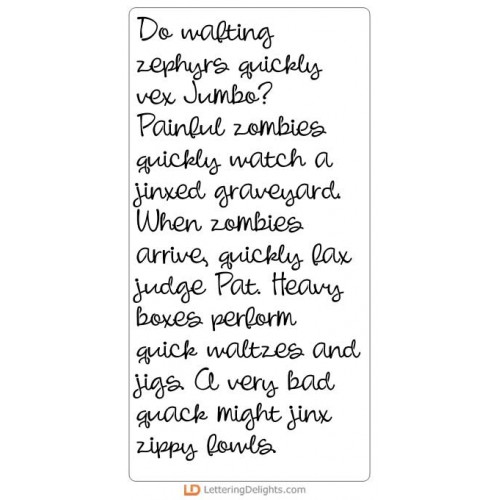 Do wafting
zephyrs quickly
vex Jumbo?
Painful zombies
quickly watch a
jinxed graveyard.
When zombies
arrive, quickly fax
judge Pat. Heavy
boxes perform
quick waltzes and
jigs. A very bad
quack might jinx
zippy fowls.
LD LetteringDelights.com